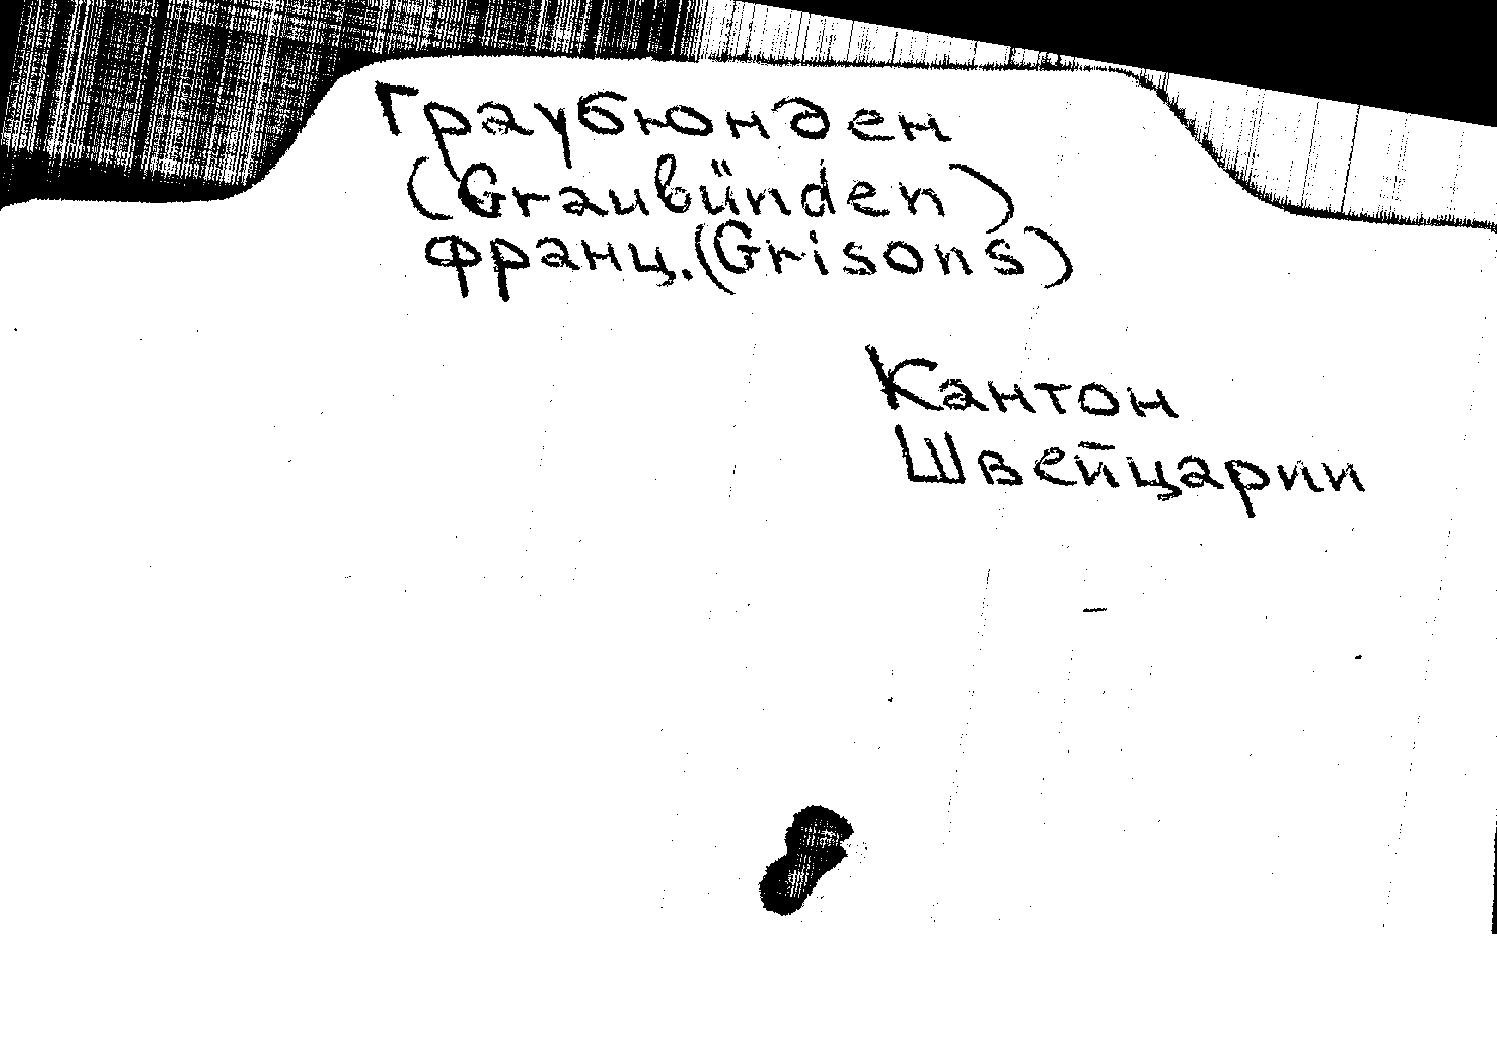 Граубюнден
(Graubünden)
франц. (Grisons)
Кантон
Швейцарии